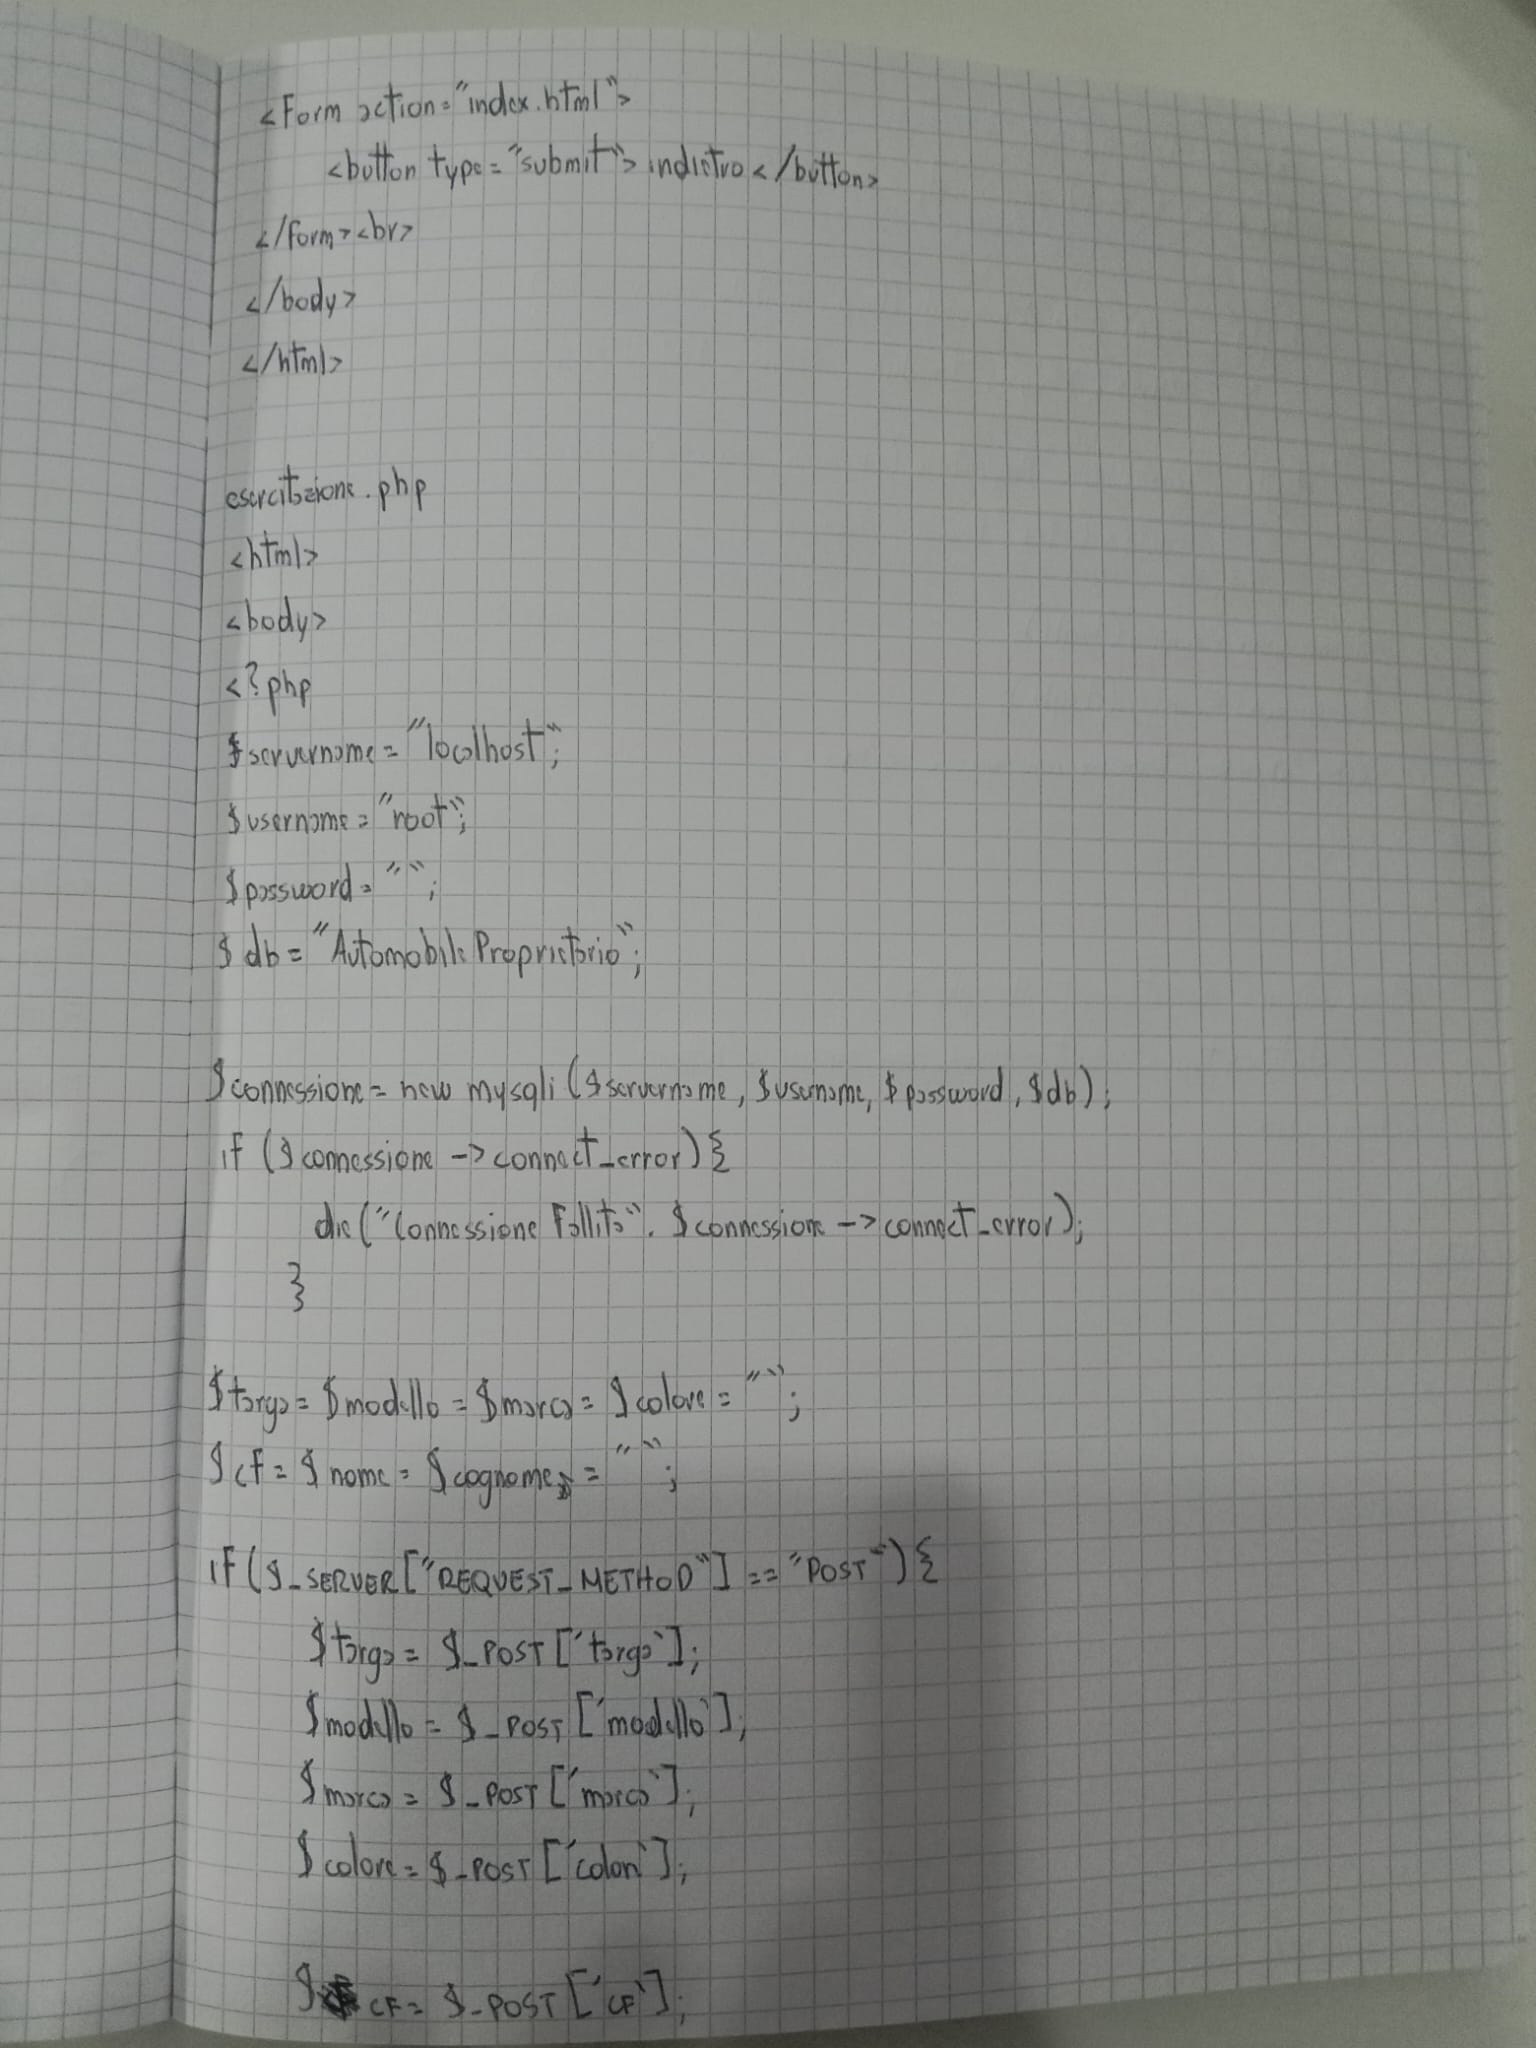 <form action="index.html">
<button type="submit"> indietro </button>
</form><br>
</body>
</html>
esercitazione.php
<html>
<body>
<?php
$servername = "localhost";
$username = "root";
$password = "";
$db = "AutomobileProprietario";
$connessione = new mysqli ($servername, $username, $password, $db);
if ($connessione -> connect_error) {
die ("Connessione Fallita". $connessione -> connect_error);
}
$targa = $modello = $marca = $colore = "";
$cf = $nome = $cognome = "";
if ($_SERVER["REQUEST_METHOD"] == "POST") {
$targa = $_POST ['targa'];
$modello = $_POST ['modello'];
$marca = $_POST ['marca'];
$colore = $_POST ['colore'];
$CF = $_POST ['CF'];